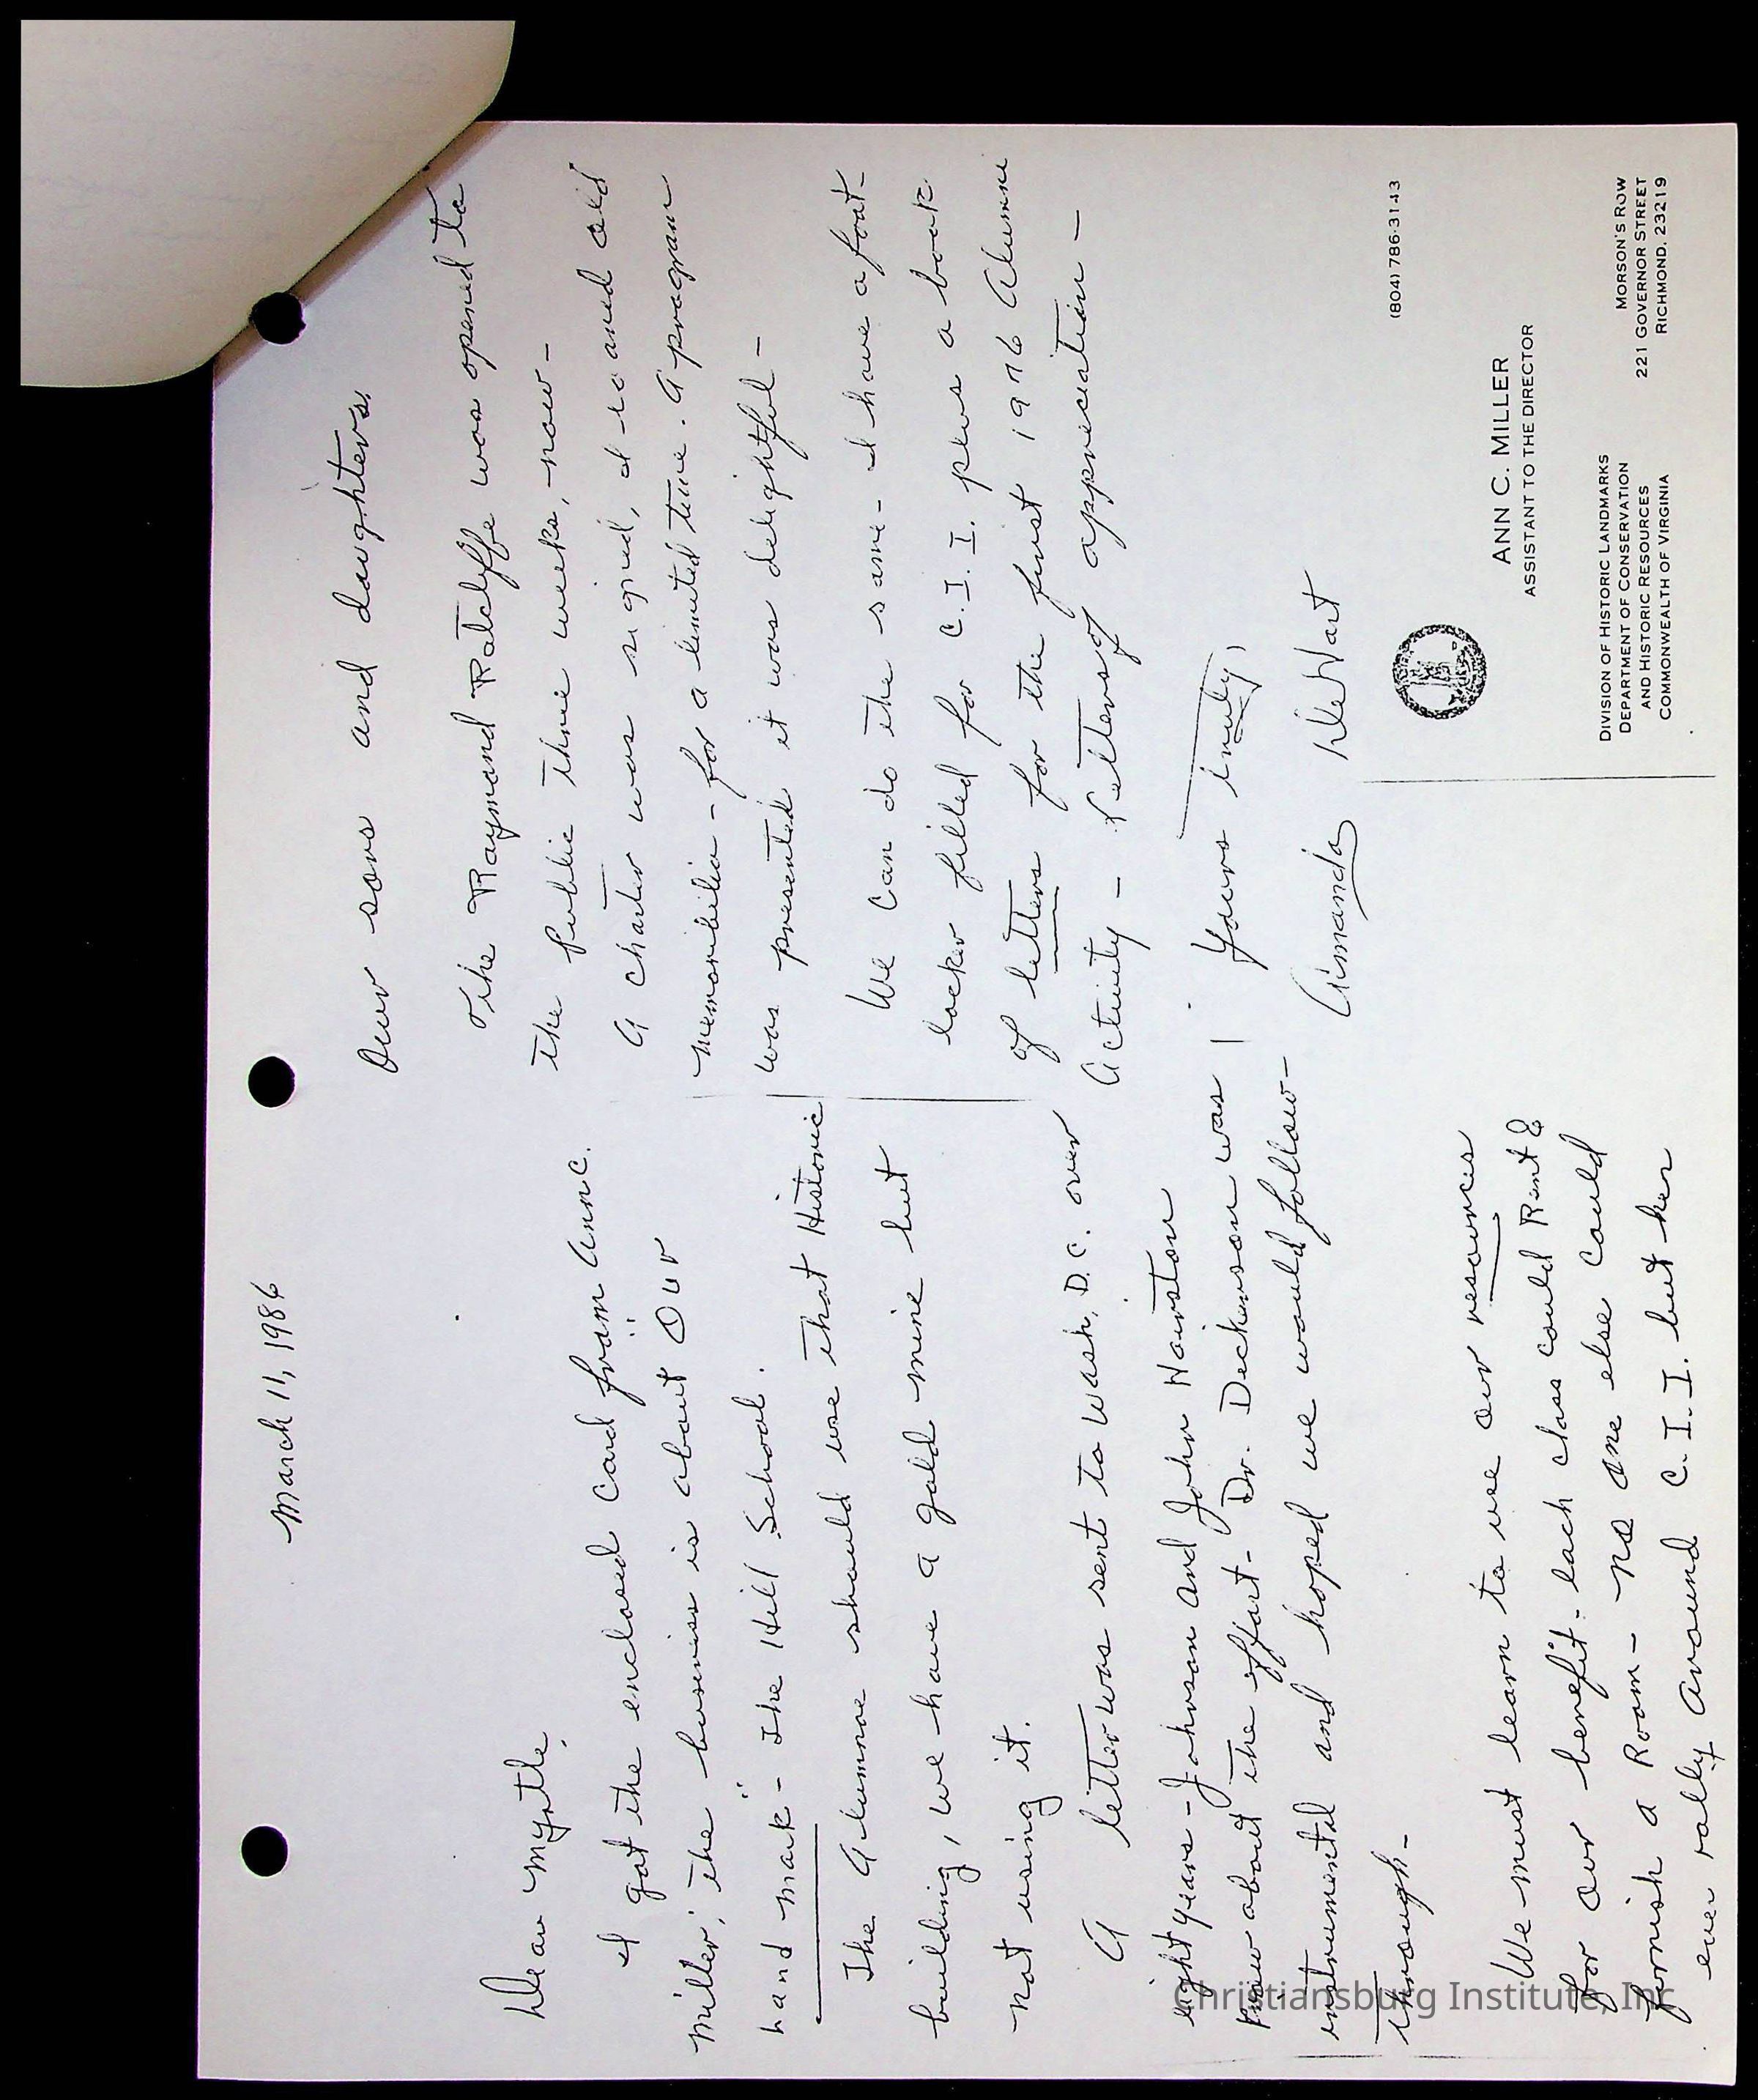 March 11, 1986
Dear Myrtle,
I got the enclosed card from Ann C.
Miller, the business is about "Our
Land mark" - The Hill School.
The Alumnae should use that Historic
building, we have a gold mine but
not using it.
A letter was sent to Wash, D.C. over
eight years - Johnson and John Hairston
knew about the effort - Dr. Deckerson was
instrumental and hoped we would follow-
through -
We must learn to use our resources
for our benefit - each class could Rent &
fornish a Room - no one else could
ever rally around C.I.I. but her
Own sons and daughters.
The Raymond Ratclyffe was opened to
the public three weeks, now -
A charter was signed, I-ro and old
memoribilia - for a limited time. A program
was presented it was delightful -
We can do the same - I have a foot-
locker filled for C.I.I. plus a book
of letters for the first 1976 Alumni
Activity - Letters of appreciation -
Yours truly,
Amanda DeHart
(804) 786-3143
ANN C. MILLER
ASSISTANT TO THE DIRECTOR
DIVISION OF HISTORIC LANDMARKS
DEPARTMENT OF CONSERVATION
AND HISTORIC RESOURCES
COMMONWEALTH OF VIRGINIA
MORSON'S ROW
221 GOVERNOR STREET
RICHMOND, 23219
Christiansburg Institute, Inc